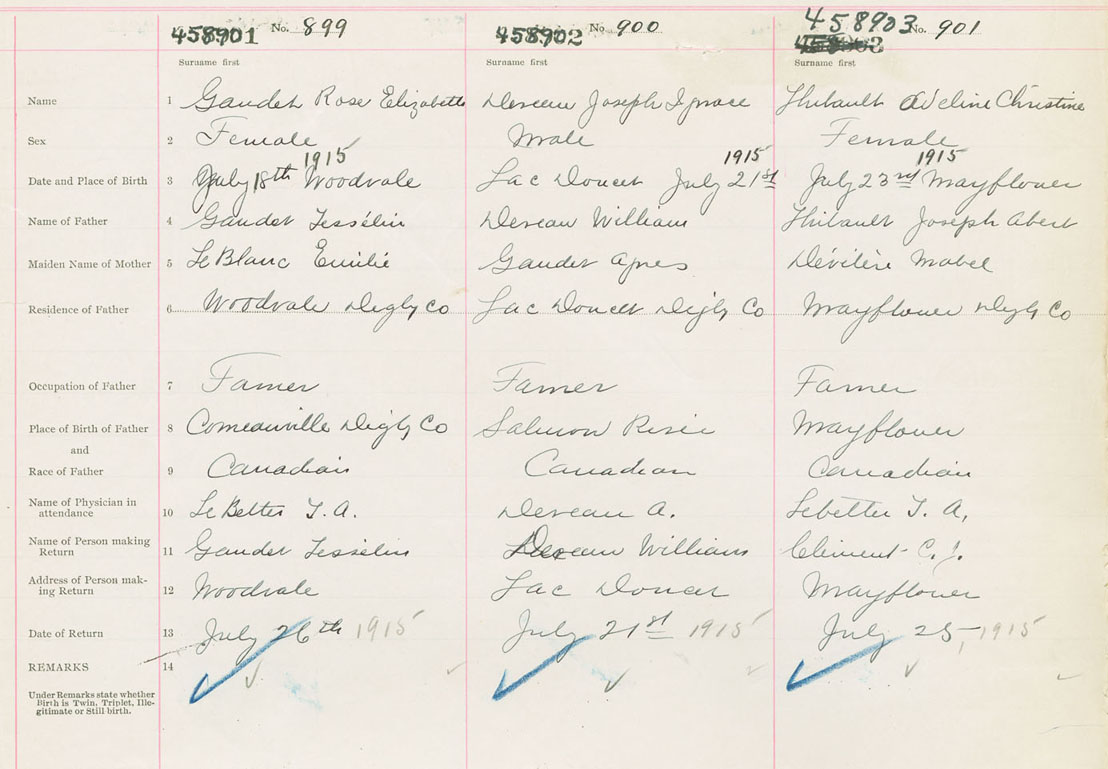 458901 No. 899 458902 No. 900 458903 No. 901
Surname first Surname first Surname first
Name 1 Gaudet Rose Elizabeth Deveau Joseph Ignace Thibault Adeline Christine
Sex 2 Female Male Female
1915 1915 1915
Date and Place of Birth 3 July 18th Woodvale Lac Doucet July 21st July 23rd Mayflower
Name of Father 4 Gaudet Deveau William Thibault Joseph Abert
Maiden Name of Mother 5 Le Blanc Emilié Gaudet Agnes Mabel
Residence of Father 6 Woodvale Digby Co Lac Doucett Digby Co Mayflower Digby Co
Occupation of Father 7 Famer Famer Famer
Place of Birth of Father 8 Comeauville Digby Co Salmon River Mayflower
and
Race of Father 9 Canadian Canadian Canadian
Name of Physician in
attendance 10 T. A. Deveau A. T. A.
Name of Person making
Return 11 Gaudet Deveau William Climent C. J.
Address of Person mak-
ing Return 12 Woodvale Lac Doucet Mayflower
Date of Return 13 July 26th 1915 July 21st 1915 July 25, 1915
REMARKS 14
Under Remarks state whether
Birth is Twin, Triplet, Ille-
gitimate or Still-birth.